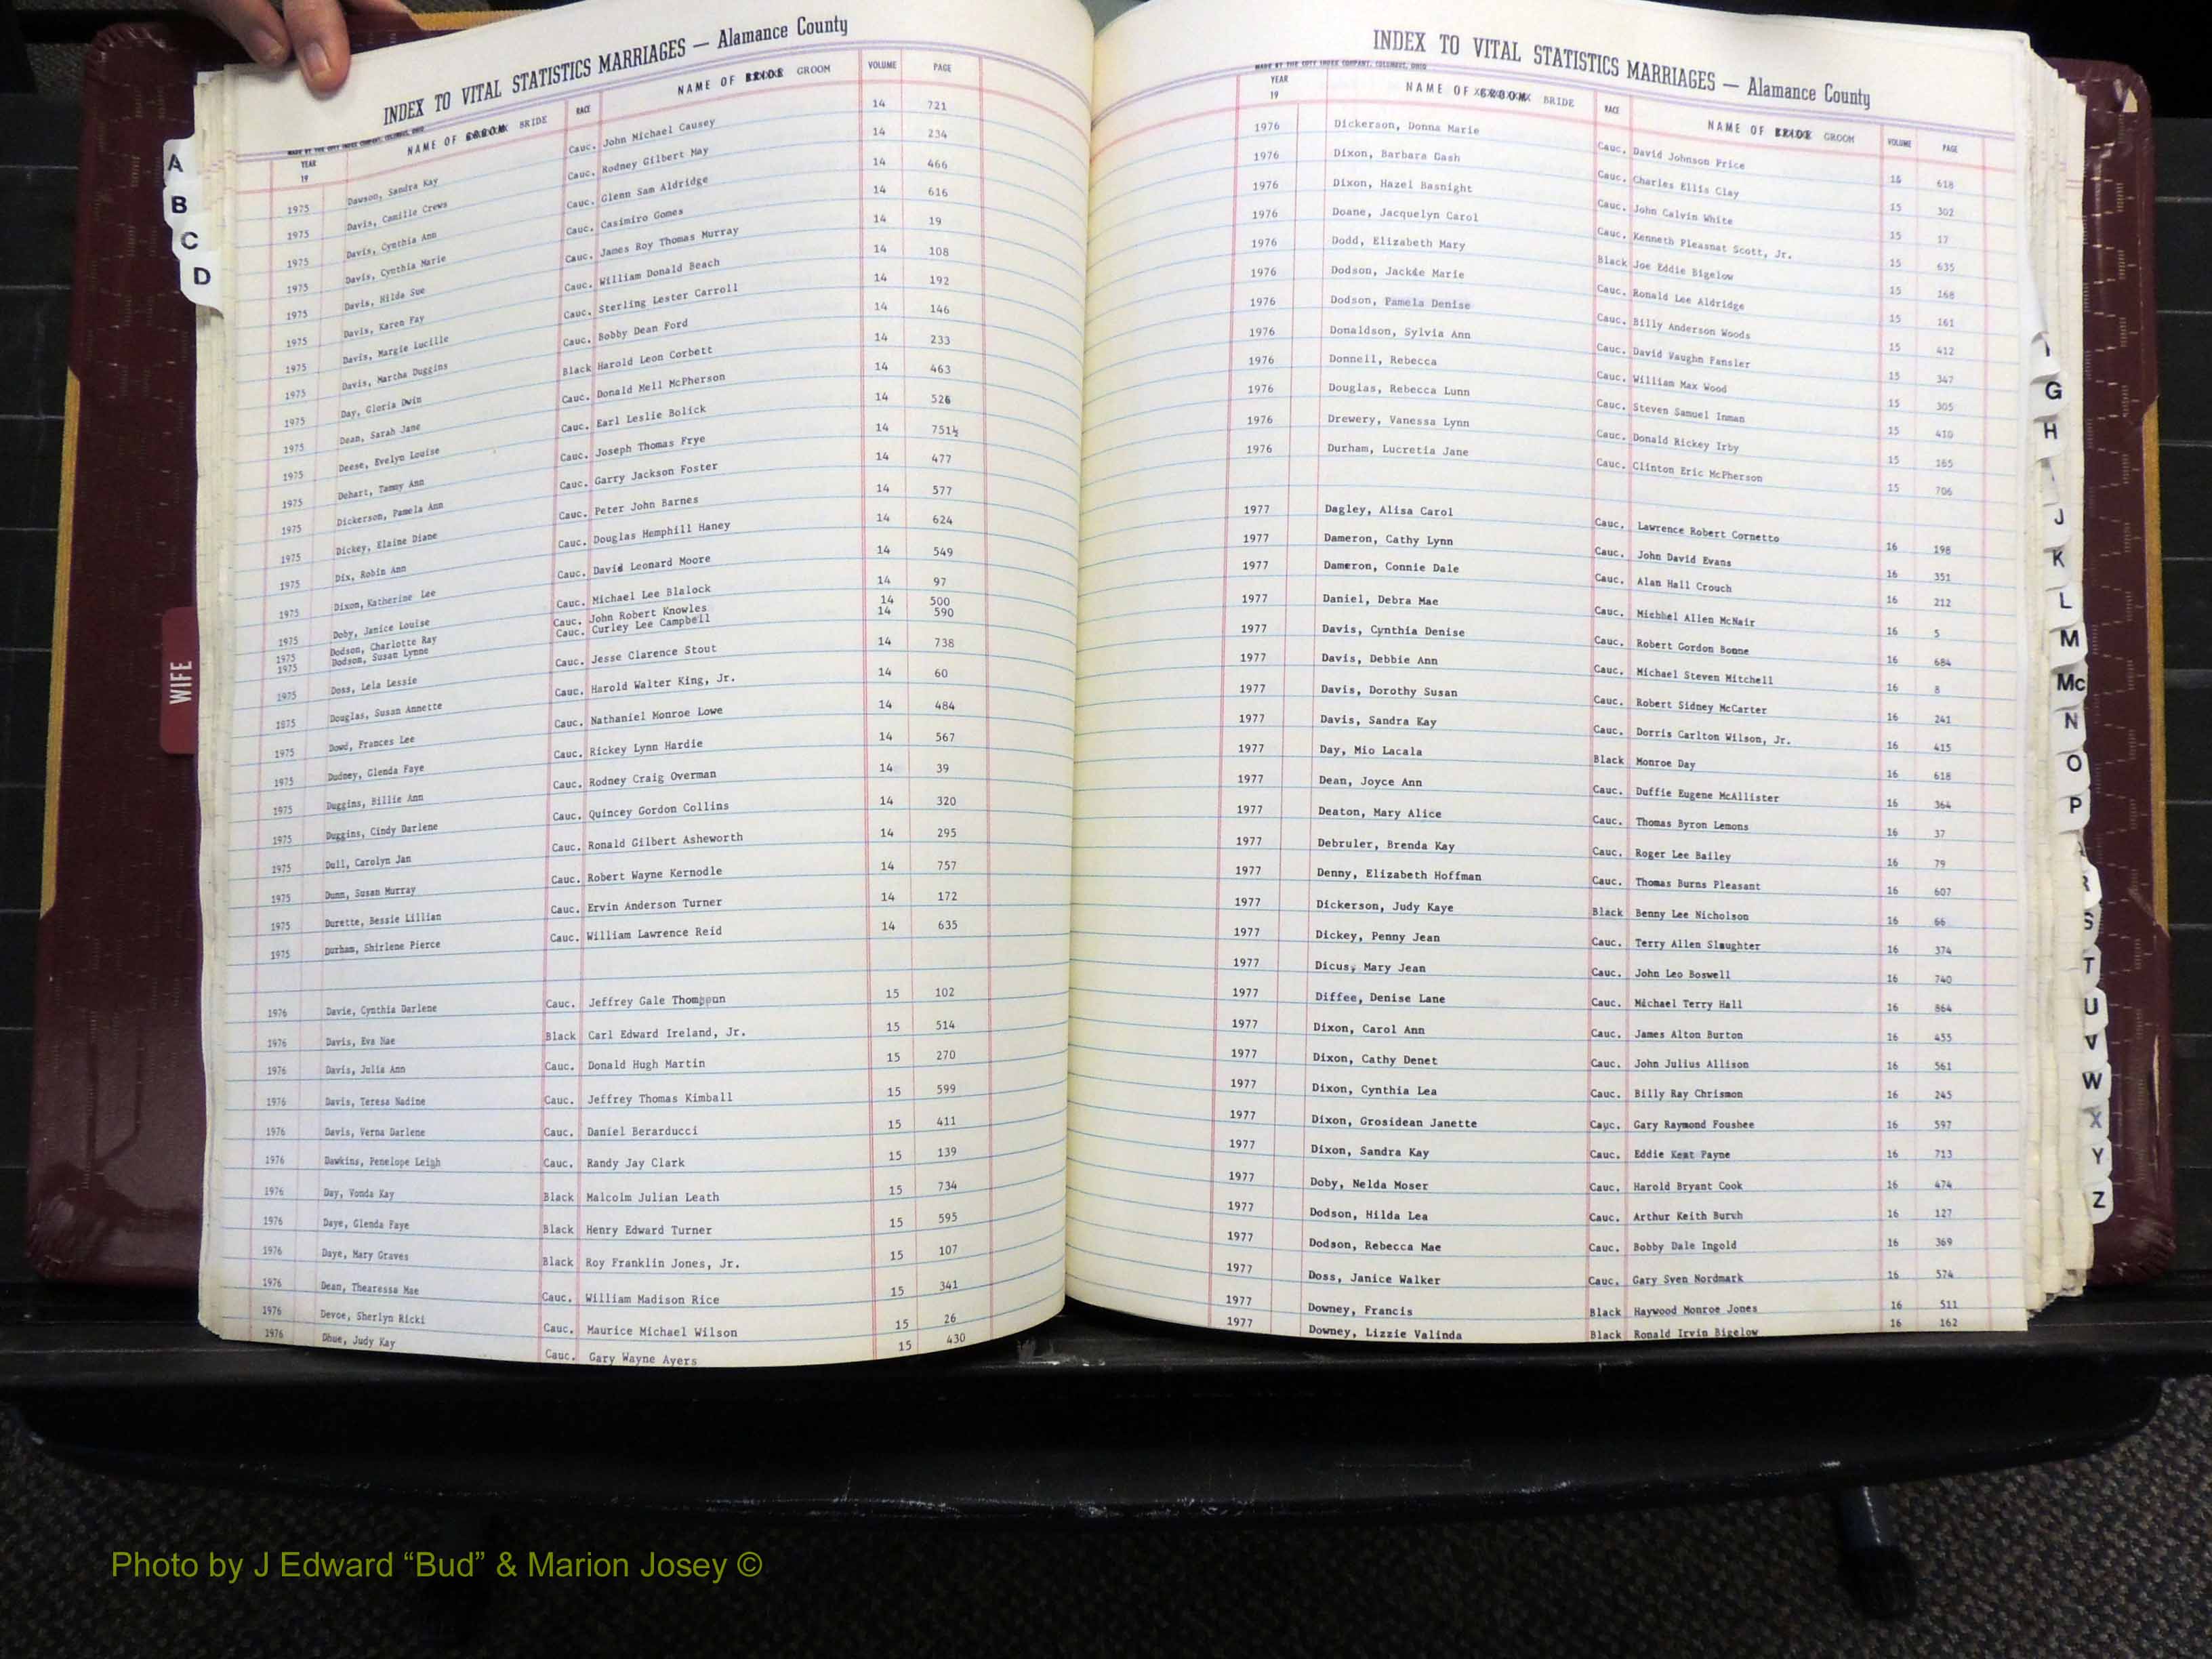 INDEX TO VITAL STATISTICS MARRIAGES — Alamance County
MADE BY THE COTT INDEX COMPANY, COLUMBUS, OHIO
YEAR 19 NAME OF GROOM BRIDE RACE NAME OF BRIDE GROOM VOLUME PAGE
1975 Dawson, Sandra Kay Cauc. John Michael Causey 14 721
1975 Davis, Camille Crews Cauc. Rodney Gilbert May 14 234
1975 Davis, Cynthia Ann Cauc. Glenn Sam Aldridge 14 466
1975 Davis, Cynthia Marie Cauc. Casimiro Gomes 14 616
1975 Davis, Hilda Sue Cauc. James Roy Thomas Murray 14 19
1975 Davis, Karen Fay Cauc. William Donald Beach 14 108
1975 Davis, Margie Lucille Cauc. Sterling Lester Carroll 14 192
1975 Davis, Martha Duggins Cauc. Bobby Dean Ford 14 146
1975 Day, Gloria Dwin Black Harold Leon Corbett 14 233
1975 Dean, Sarah Jane Cauc. Donald Mell McPherson 14 463
1975 Deese, Evelyn Louise Cauc. Earl Leslie Bolick 14 526
1975 Dehart, Tammy Ann Cauc. Joseph Thomas Frye 14 751½
1975 Dickerson, Pamela Ann Cauc. Garry Jackson Foster 14 477
1975 Dickey, Elaine Diane Cauc. Peter John Barnes 14 577
1975 Dix, Robin Ann Cauc. Douglas Hemphill Haney 14 624
1975 Dixon, Katherine Lee Cauc. David Leonard Moore 14 549
1975 Doby, Janice Louise Cauc. Michael Lee Blalock 14 97
1975 Dodson, Charlotte Ray Cauc. John Robert Knowles 14 500
1975 Dodson, Susan Lynne Cauc. Curley Lee Campbell 14 590
1975 Doss, Lela Lessie Cauc. Jesse Clarence Stout 14 738
1975 Douglas, Susan Annette Cauc. Harold Walter King, Jr. 14 60
1975 Dowd, Frances Lee Cauc. Nathaniel Monroe Lowe 14 484
1975 Dudney, Glenda Faye Cauc. Rickey Lynn Hardie 14 567
1975 Duggins, Billie Ann Cauc. Rodney Craig Overman 14 39
1975 Duggins, Cindy Darlene Cauc. Quincey Gordon Collins 14 320
1975 Dull, Carolyn Jan Cauc. Ronald Gilbert Asheworth 14 295
1975 Dunn, Susan Murray Cauc. Robert Wayne Kernodle 14 757
1975 Durette, Bessie Lillian Cauc. Ervin Anderson Turner 14 172
1975 Durham, Shirlene Pierce Cauc. William Lawrence Reid 14 635
1976 Davie, Cynthia Darlene Cauc. Jeffrey Gale 15 102
1976 Davis, Eva Mae Black Carl Edward Ireland, Jr. 15 514
1976 Davis, Julia Ann Cauc. Donald Hugh Martin 15 270
1976 Davis, Teresa Nadine Cauc. Jeffrey Thomas Kimball 15 599
1976 Davis, Verna Darlene Cauc. Daniel Berarducci 15 411
1976 Dawkins, Penelope Leigh Cauc. Randy Jay Clark 15 139
1976 Day, Vonda Kay Black Malcolm Julian Leath 15 734
1976 Daye, Glenda Faye Black Henry Edward Turner 15 595
1976 Daye, Mary Graves Black Roy Franklin Jones, Jr. 15 107
1976 Dean, Thearessa Mae Cauc. William Madison Rice 15 341
1976 Devoe, Sherlyn Ricki Cauc. Maurice Michael Wilson 15 26
1976 Dhue, Judy Kay Cauc. Gary Wayne Ayers 15 430
INDEX TO VITAL STATISTICS MARRIAGES — Alamance County
MADE BY THE COTT INDEX COMPANY, COLUMBUS, OHIO
YEAR 19 NAME OF GROOM BRIDE RACE NAME OF BRIDE GROOM VOLUME PAGE
1976 Dickerson, Donna Marie Cauc. David Johnson Price 16 618
1976 Dixon, Barbara Gash Cauc. Charles Ellis Clay 15 302
1976 Dixon, Hazel Basnight Cauc. John Calvin White 15 17
1976 Doane, Jacquelyn Carol Cauc. Kenneth Pleasnat Scott, Jr. 15 635
1976 Dodd, Elizabeth Mary Black Joe Eddie Bigelow 15 168
1976 Dodson, Jackie Marie Cauc. Ronald Lee Aldridge 15 161
1976 Dodson, Pamela Denise Cauc. Billy Anderson Woods 15 412
1976 Donaldson, Sylvia Ann Cauc. David Vaughn Fansler 15 347
1976 Donnell, Rebecca Cauc. William Max Wood 15 305
1976 Douglas, Rebecca Lunn Cauc. Steven Samuel Inman 15 410
1976 Drewery, Vanessa Lynn Cauc. Donald Rickey Irby 15 165
1976 Durham, Lucretia Jane Cauc. Clinton Eric McPherson 15 706
1977 Dagley, Alisa Carol Cauc. Lawrence Robert Cornetto 16 198
1977 Dameron, Cathy Lynn Cauc. John David Evans 16 351
1977 Dameron, Connie Dale Cauc. Alan Hall Crouch 16 212
1977 Daniel, Debra Mae Cauc. Michhel Allen McNair 16 5
1977 Davis, Cynthia Denise Cauc. Robert Gordon Bonne 16 684
1977 Davis, Debbie Ann Cauc. Michael Steven Mitchell 16 8
1977 Davis, Dorothy Susan Cauc. Robert Sidney McCarter 16 241
1977 Davis, Sandra Kay Cauc. Dorris Carlton Wilson, Jr. 16 415
1977 Day, Mio Lacala Black Monroe Day 16 618
1977 Dean, Joyce Ann Cauc. Duffie Eugene McAllister 16 364
1977 Deaton, Mary Alice Cauc. Thomas Byron Lemons 16 37
1977 Debruler, Brenda Kay Cauc. Roger Lee Bailey 16 79
1977 Denny, Elizabeth Hoffman Cauc. Thomas Burns Pleasant 16 607
1977 Dickerson, Judy Kaye Black Benny Lee Nicholson 16 66
1977 Dickey, Penny Jean Cauc. Terry Allen Slaughter 16 374
1977 Dicus, Mary Jean Cauc. John Leo Boswell 16 740
1977 Diffee, Denise Lane Cauc. Michael Terry Hall 16 864
1977 Dixon, Carol Ann Cauc. James Alton Burton 16 455
1977 Dixon, Cathy Denet Cauc. John Julius Allison 16 561
1977 Dixon, Cynthia Lea Cauc. Billy Ray Chrismon 16 245
1977 Dixon, Grosidean Janette Cauc. Gary Raymond Foushee 16 597
1977 Dixon, Sandra Kay Cauc. Eddie Kent Payne 16 713
1977 Doby, Nelda Moser Cauc. Harold Bryant Cook 16 474
1977 Dodson, Hilda Lea Cauc. Arthur Keith Burch 16 127
1977 Dodson, Rebecca Mae Cauc. Bobby Dale Ingold 16 369
1977 Doss, Janice Walker Cauc. Gary Sven Nordmark 16 574
1977 Downey, Francis Black Haywood Monroe Jones 16 511
1977 Downey, Lizzie Valinda Black Ronald Irvin Bigelow 16 162
A
B
C
D
WIFE
G
H
J
K
L
M
Mc
N
O
P
R
S
T
U
V
W
X
Y
Z
Photo by J Edward “Bud” & Marion Josey ©